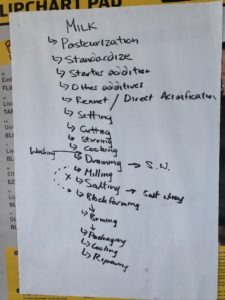 LIPCHART PAD
MILK
↳ Pasteurization
↳ Standardize
↳ Starter addition
↳ Other additives
↳ Rennet / Direct Acidification
↳ Setting
↳ Cutting
↳ Stirring
↳ Cooking
Washing → Draining → S.W.
↳ Milling
↳ Salting → Salt whey
↳ Block forming
↳ Brining
↳ Packaging
↳ Cooling
↳ Ripening